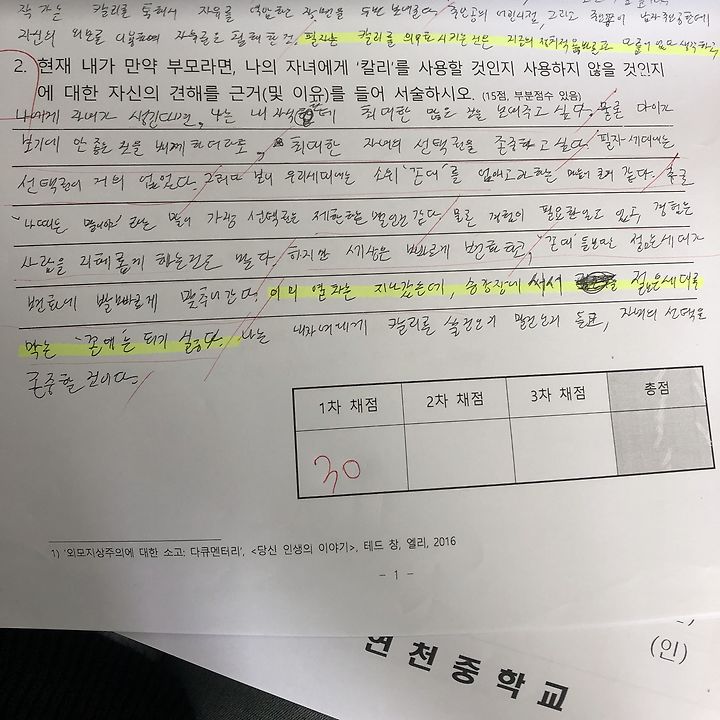 작가는 칼리를 통해서 자유를 억압하는 장면을 보여준다. 주인공의 시점, 그리고
자신의 외모를 필자는 칼리를 의무화 시키는 것은 지금의 정치적 다를게 없다 생각하고,
2. 현재 내가 만약 부모라면, 나의 자녀에게 '칼리'를 사용할 것인지 사용하지 않을 것인지
에 대한 자신의 견해를 근거(및 이유)를 들어 서술하시오. (15점, 부분점수 있음)
나에게 자녀가 생긴다면, 나는 내 자식에게 최대한 많은 것을 보여주고 싶다. 물론 다이가
보기에 안 좋은 것을 하더라도, 최대한 자녀의 선택권을 존중하고 싶다. 필자 세대에는
선택권이 거의 없었다. 그러다 보니 우리세대에는 소위 '꼰대'를 같다. 흔히
'나때는 말이야' 라는 말이 가장 선택권을 제한하는 발언 같다. 물론 경험이 필요한 일도 있고, 경험은
사람을 하는 것은 맞다. 하지만 세상은 빠르게 변화하고, '꼰대'들보단 젊은세대가
변화에 발빠르게 맞추어간다. 이미 열차는 지나갔는데, 승강장에 서서 젊은세대를
막는 '꼰대'는 되기 싫다. 나는 내자녀에게 칼리를 쓸건지 말건지 자녀의 선택을
존중할 것이다.
1차 채점 2차 채점 3차 채점 총점
30
1) '외모지상주의에 대한 소고: 다큐멘터리', <당신 인생의 이야기>, 테드 창, 엘리, 2016
- 1 -
(인)
연천중학교